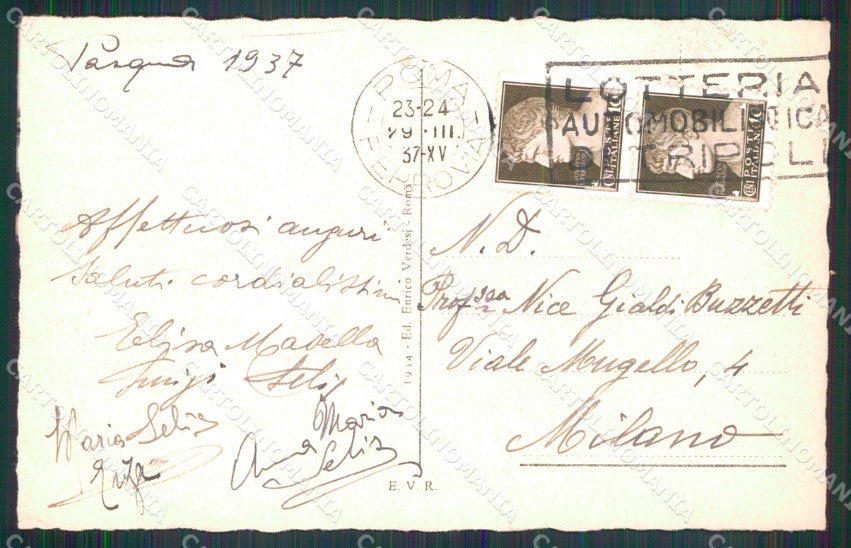 Pasqua 1937
ROMA
FERROVIA
23-24
29·III
37-XV
LOTTERIA
AUTOMOBILISTICA
DI TRIPOLI
POSTE ITALIANE
POSTE ITALIANE
Affettuosi auguri
Saluti cordialissimi
Elisa
Luigi Selis
Maria Selis
Enza
Anna Maria
Selis
1934 - Ed. Enrico Verdesi - Roma
E. V. R.
N. D.
Prof.ssa Nice Gialdi Buzzetti
Viale Mugello, 4
Milano
CARTOLINOMANIA